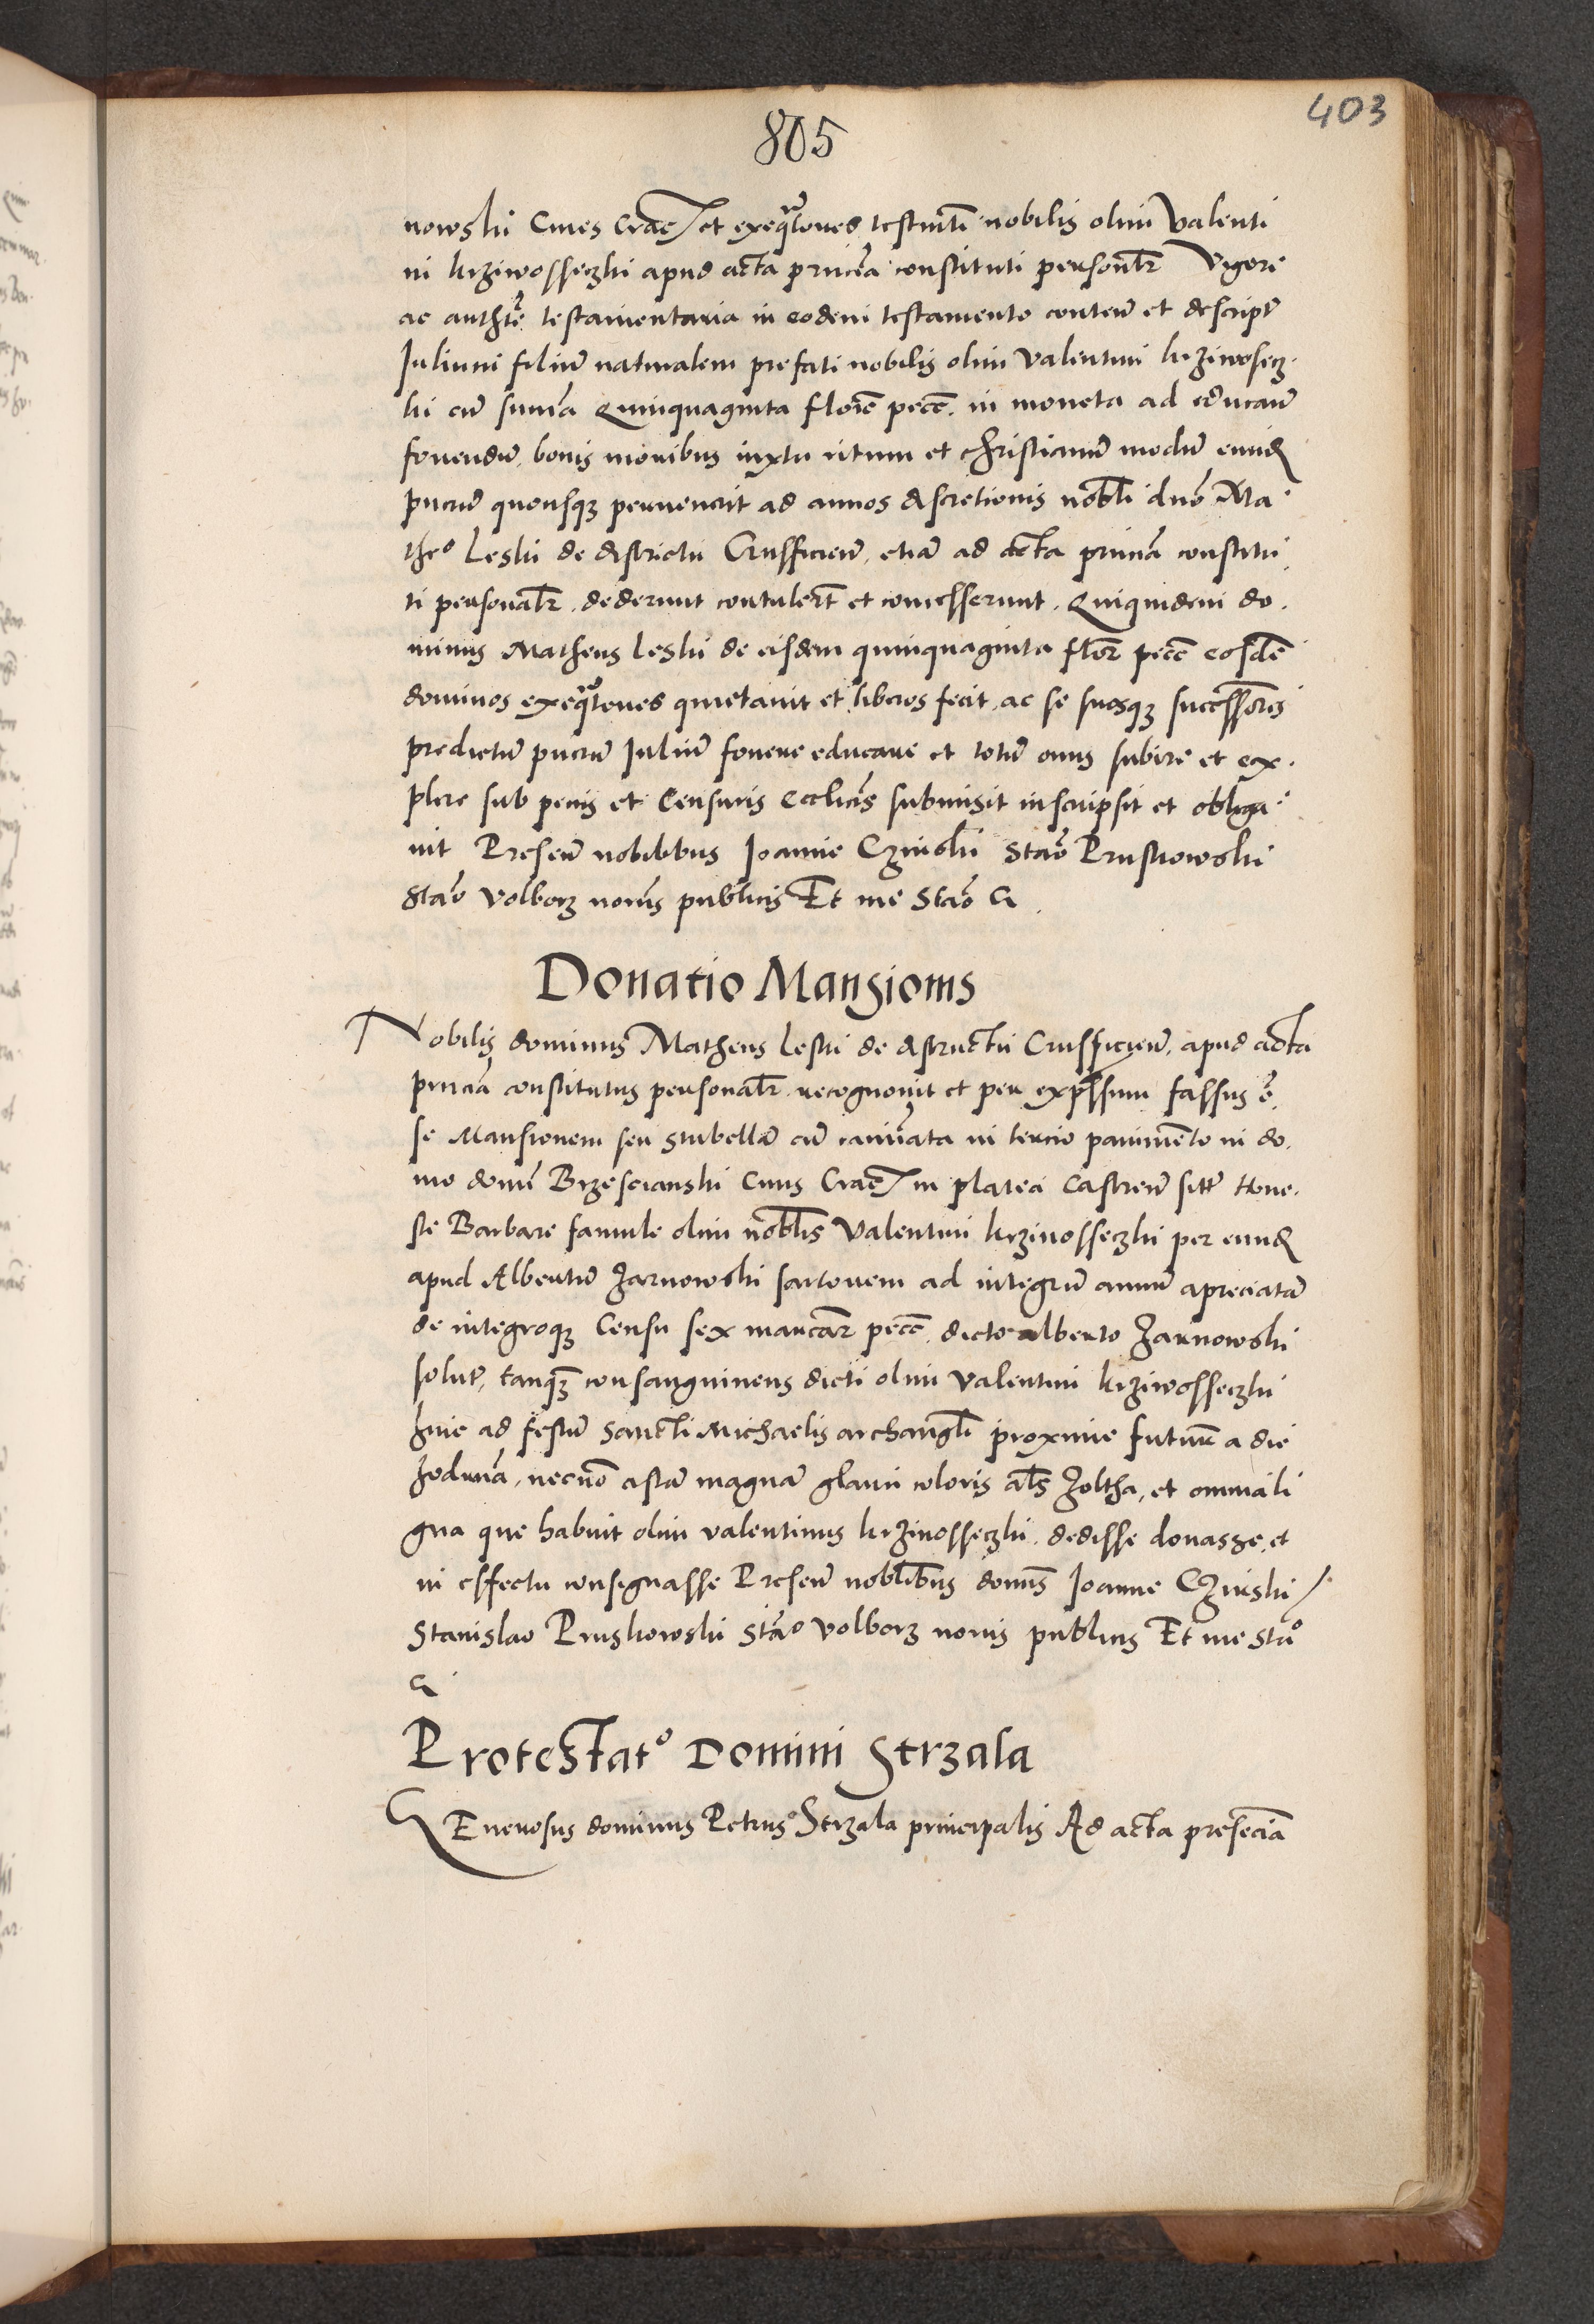 403
805
nowski Ciues Crac̄ et exeq̄tores testm̄ti nobilis olim Valenti
ni krziwosseczki apud acta pn̄cia constituti personalr̄ Vigore
ac authte testamentaria in eodem testamento conten̄ et descript̄
Julium filiū naturalem prefati nobilis olim Valentini krziwosecz
ki cū sum̄a Quinquaginta floren̄ pecē in moneta ad educan̄
fouendū bonis moribus iuxta ritum et christianū modū eund
puerū quousqȝ peruenerit ad annos discretionis nob̄li dn̄o Ma
theo leski de districtu Crusficien̄ etiā ad acta pn̄cia constitu
ti personalr̄ dederunt contulert̄ et concesserunt Quiquidem do
minus Matheus leski de eisdem quinquaginta flor̄ pecē eosdē
dominos exeq̄tores quietauit et liberos fecit ac se suosqȝ successores
predictū puerū Juliū fouere educare et totū onus subire et ex
plere sub penis et Censuris ecclicis submisit inscripsit et obliga
uit Presen̄ nobilibus Joanne Czinski Stan̄o Pruskowski
Stan̄o Volborz notarīs publicis Et me Stan̄o &
Donatio Mansionis
Nobilis dominus Matheus leski de districtu Crusficien̄ apud acta
pn̄cia constitutus personalr̄ recognouit et per expressum fassus ē
se Mansionem seu stubellā cū cam̄ata in tercio pauimento in do
mo domi Brzescianski Ciuis Crac̄ in platea Castren̄ sitt̄ Hone
ste Barbare famule olim nob̄lis Valentini krziuosseczki per eund
apud Albertū Zarnowski sartorem ad integrū annū apreciatā
de integroqȝ Censu sex marcar̄ pecē dicto alberto Zarnowski
solut̄ tanqȝ consanguineus dicti olim Valentini krziwosseczki
hinc ad festū Sancti Michaelis archangli proxime futur̄ a die
hodierna necno cistā magnā glaui coloris als̄ Zoltha et omnia li
gna que habuit olim valentinus krziuosseczki dedisse donasse et
in effectu consignasse Presen̄ nob̄libus domīs Joanne Czinski
Stanislao Pruskowski Stan̄o Volborz notis publicis Et me Stan̄o
&
Protestat° Domini Strzala
GEnerosus dominus Petrus Strzala principalis Ad acta presēcia